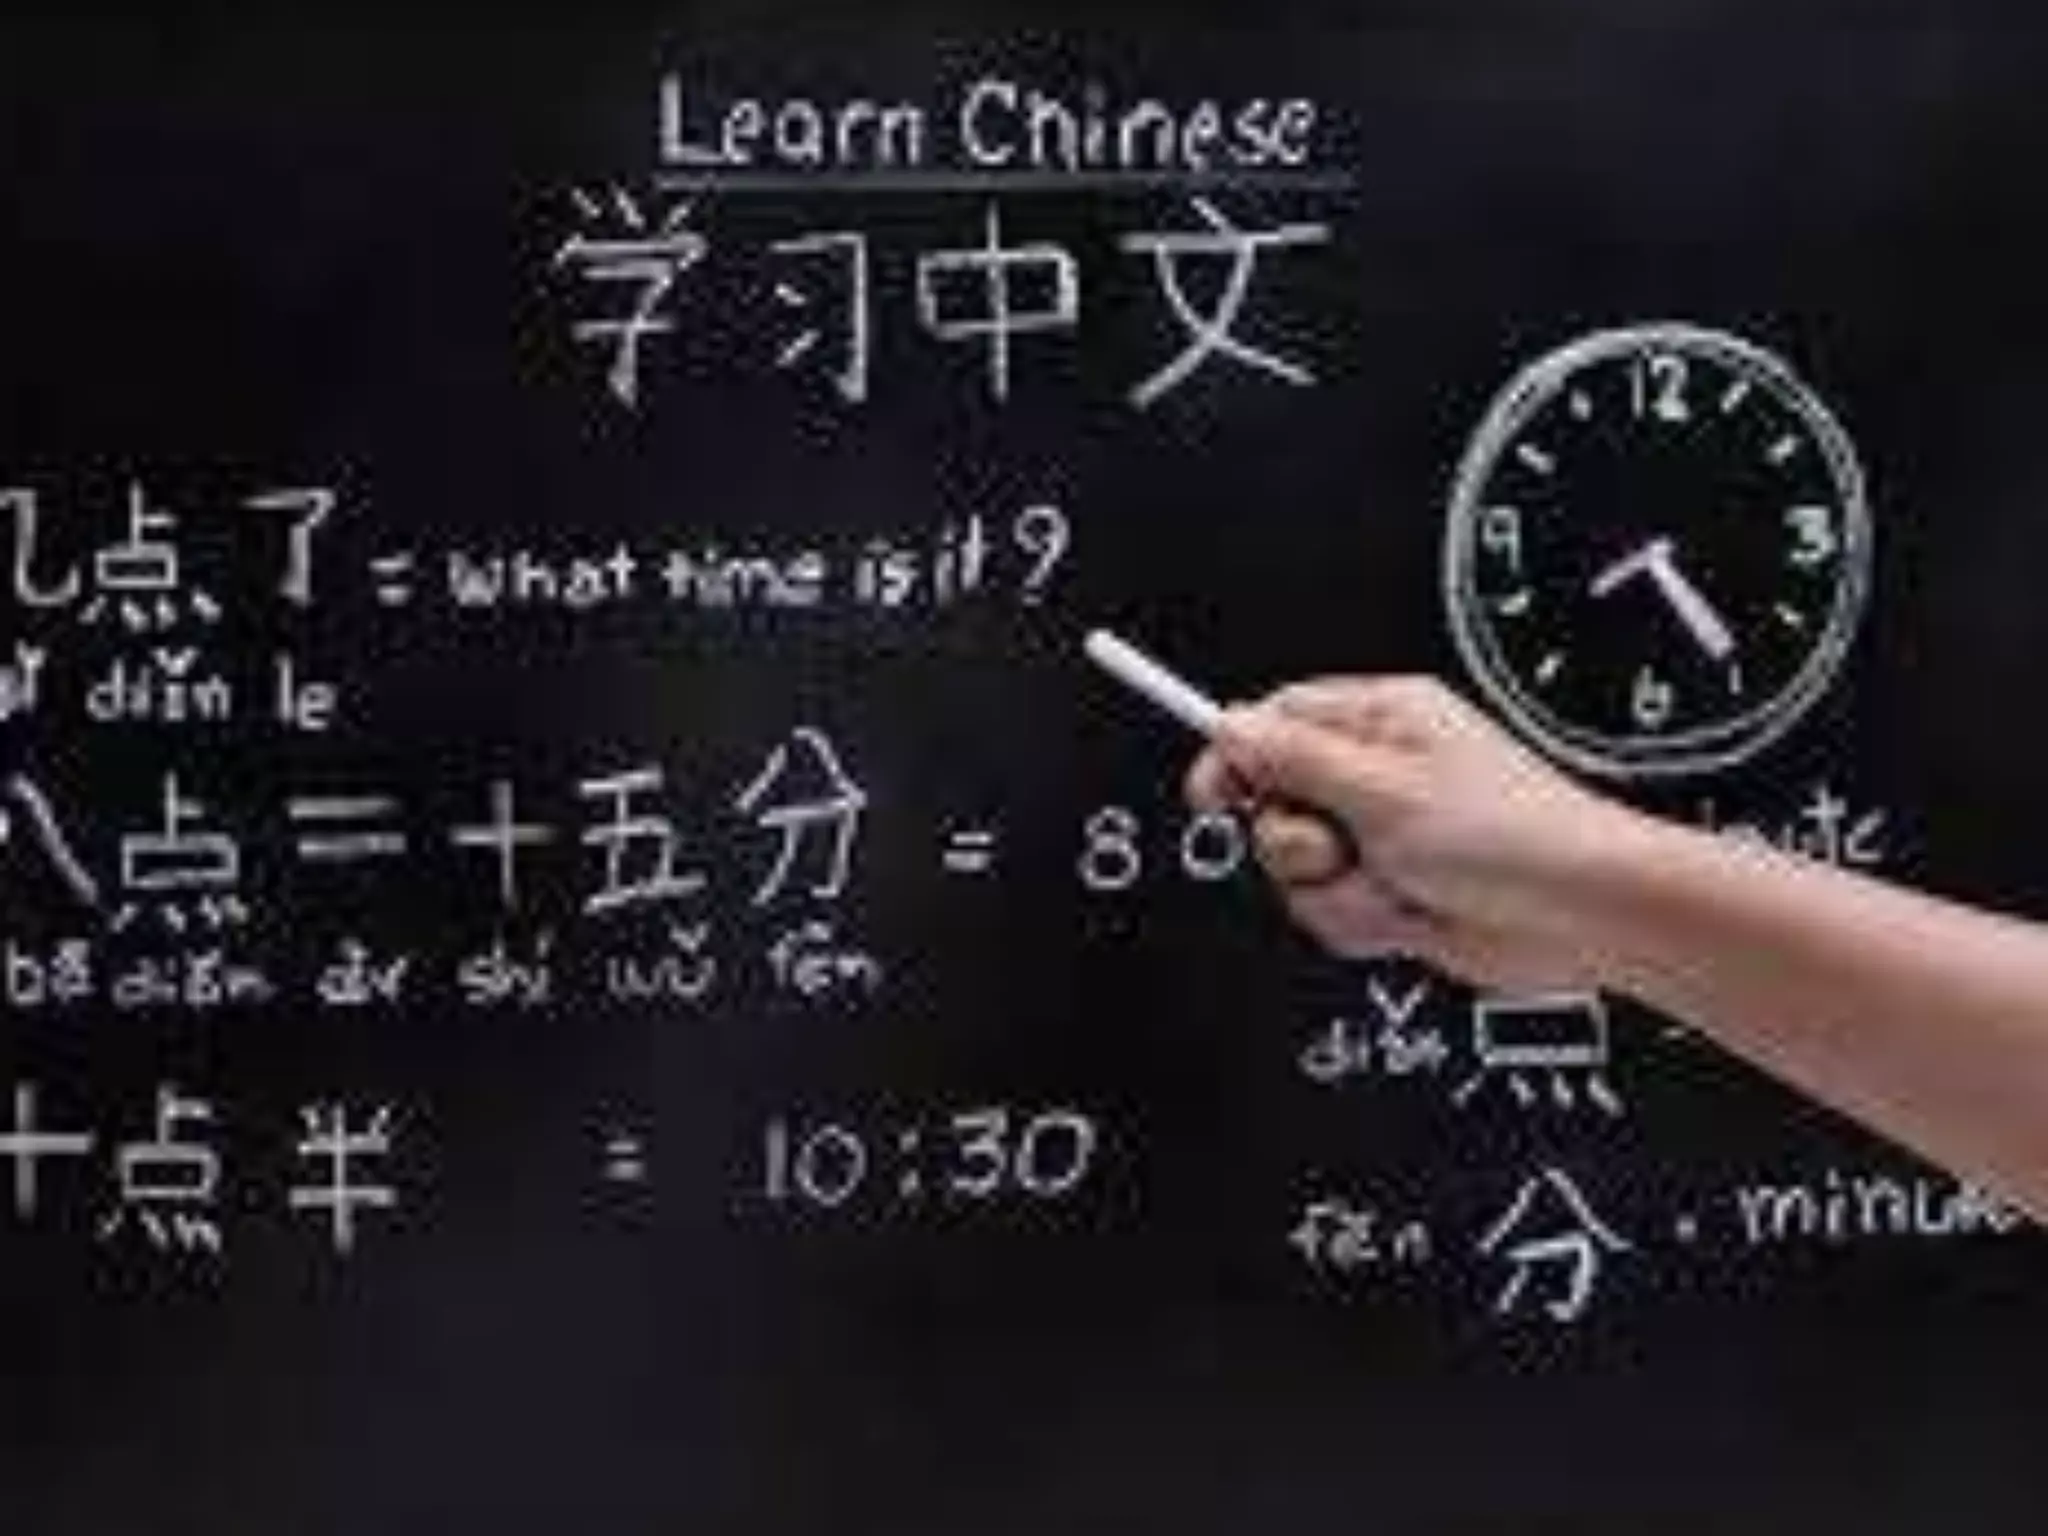 Learn Chinese
学习中文
几点了 = what time is it?
diǎn le
12
9 3
6
八点二十五分 = 8 0
bā diǎn èr shí wǔ fēn
diǎn 点
十点半 = 10:30
fēn 分 . minu